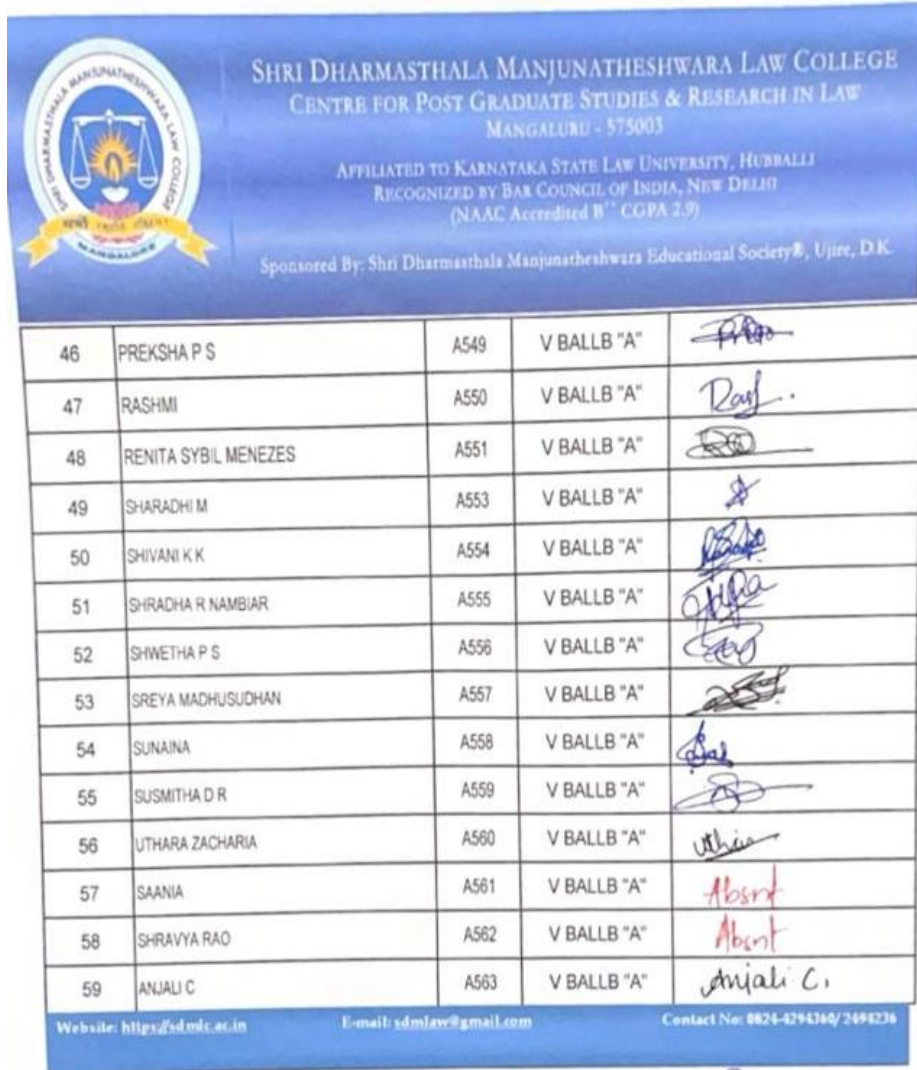 SHRI DHARMASTHALA MANJUNATHESHWARA LAW COLLEGE
CENTRE FOR POST GRADUATE STUDIES & RESEARCH IN LAW
MANGALURU - 575003
AFFILIATED TO KARNATAKA STATE LAW UNIVERSITY, HUBBALLI
RECOGNIZED BY BAR COUNCIL OF INDIA, NEW DELHI
(NAAC Accredited B++ CGPA 2.9)
Sponsored By: Shri Dharmasthala Manjunatheshwara Educational Society®, Ujire, D.K.
SHRI DHARMASTHALA MANJUNATHESHWARA LAW COLLEGE
MANGALORE
46 PREKSHA P S A549 V BALLB "A"
47 RASHMI A550 V BALLB "A"
48 RENITA SYBIL MENEZES A551 V BALLB "A"
49 SHARADHI M A553 V BALLB "A"
50 SHIVANI K K A554 V BALLB "A"
51 SHRADHA R NAMBIAR A555 V BALLB "A"
52 SHWETHA P S A556 V BALLB "A"
53 SREYA MADHUSUDHAN A557 V BALLB "A"
54 SUNAINA A558 V BALLB "A"
55 SUSMITHA D R A559 V BALLB "A"
56 UTHARA ZACHARIA A560 V BALLB "A"
57 SAANIA A561 V BALLB "A" Absnt
58 SHRAVYA RAO A562 V BALLB "A" Absnt
59 ANJALI C A563 V BALLB "A" Anjali C.
Website: https://sdmlc.ac.in E-mail: sdmlaw@gmail.com Contact No: 0824-4294360/ 2494236